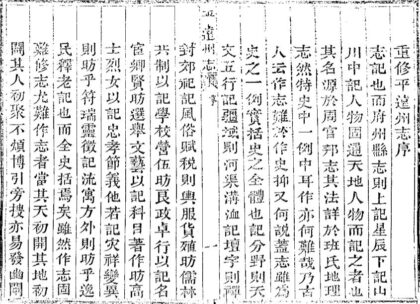 重修平遠州志序
志記也而府州縣志則上記星辰下記山
川中記人物固通天地人物而記之者也
其名源於周官邦志其法詳於班氏地理
志然特史中一例中耳作亦何難哉乃古
人云作志難於作史抑又何說蓋志雖爲
史之一例實括史之全體也記分野則天
文五行記疆域則河渠溝洫記壇宇則禪
遠州志 序
封郊祀記風俗賦稅則輿服貨殖助儒林
共制以記學校營伍助良政卓行以記名
宦鄉賢助選舉文藝以記科目著作助高
士烈女以記忠孝節義他若記灾祥變異
則助乎符瑞靈徵記流寓方外則助乎逸
民釋老記也而全史括焉矣雖然作志固
難修志尤難作志者當其天初開其地初
闢其人初聚不煩博引旁搜亦易發幽闡